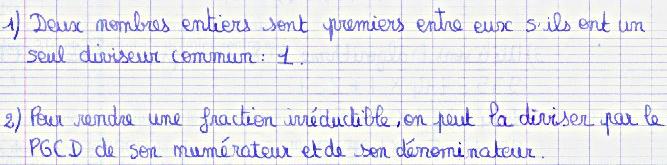 1) Deux nombres entiers sont premiers entre eux s'ils ont un
seul diviseur commun : 1.
2) Pour rendre une fraction irréductible, on peut la diviser par le
PGCD de son numérateur et de son dénominateur.